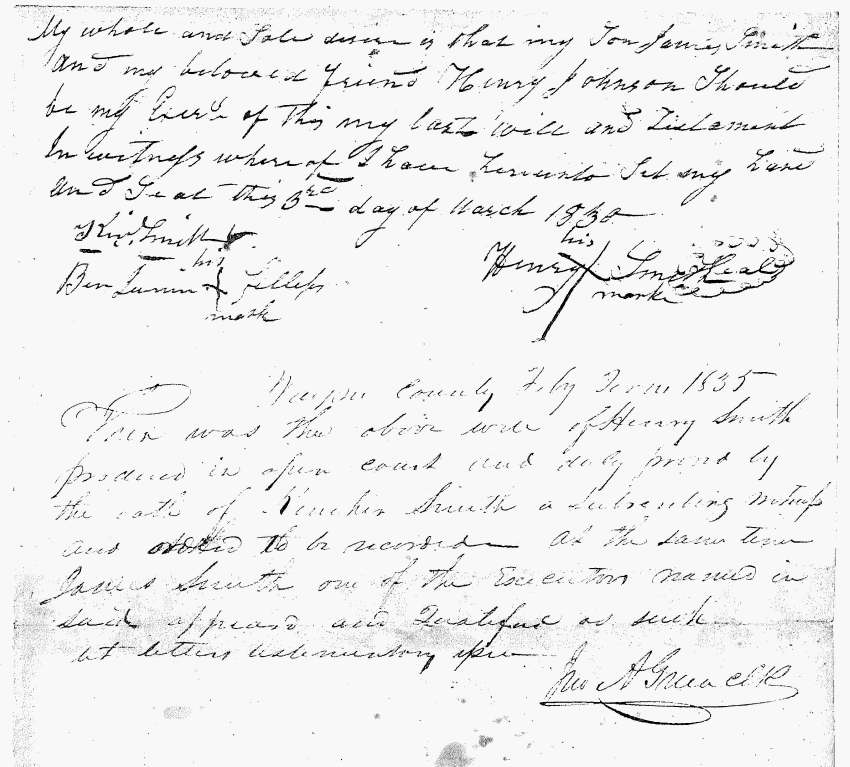 My whole and Sole desire is that my Son James Smith
and my beloved friend Henry Johnson Should
be my Exers of this my last will and Testament
In witness where of I have hereunto Set my hand
and Seal this 3rd day of March 1830
Smith
his
Benjamin Fillips
mark
his
Henry Smith Seal
mark
County Feby Term 1835
Then was the above will of Henry Smith
produced in open court and duly proved by
the oath of Smith a subscribing witness
and ordered to be recorded At the same time
James Smith one of the Executors named in
said appeard and Qualified as such
let letters testamentory issue
Jno A